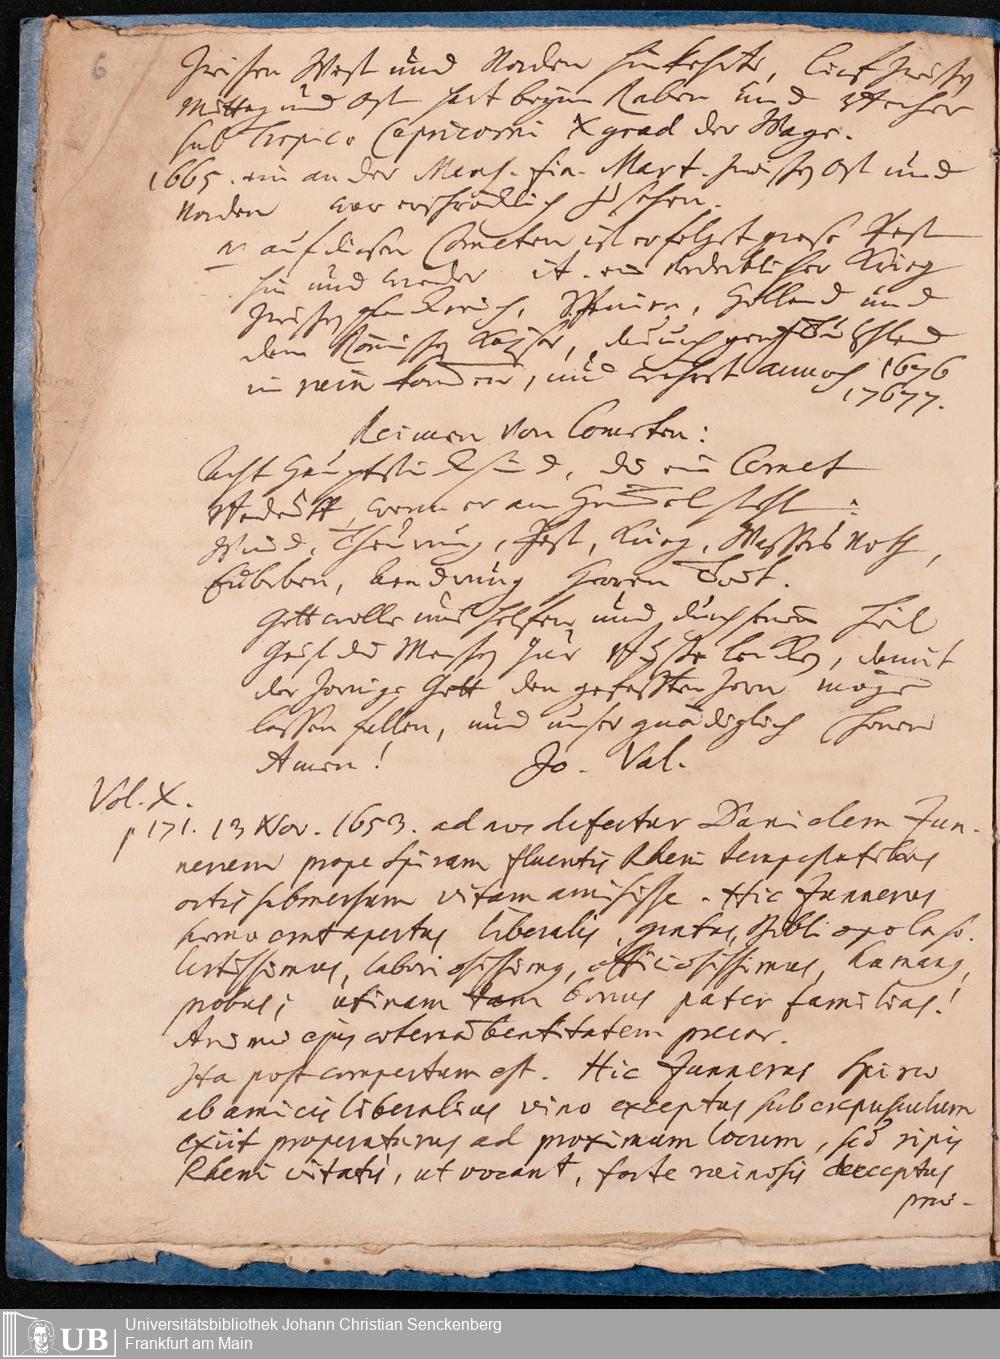 6
Zwischen West und Norden hinkehrte, lieff zwischen
Mittag und Ost hart beym Raben und Becher
sub Tropico Capricorni X grad der Wage.
1665. ein ander Mens. fin. Mart. zwischen Ost und
Norden war erschröcklich zusehen.
auf diesen Cometen ist erfolgt grosse Pest
hin und wieder it. ein verderblicher Krieg
zwischen Franckreich, Spanien, Holland und
dem Römischen Kayser, durch gantz Teutschland
und wehret annoch 1676
1677.
Reimen von Cometen:
Acht Hauptstück sind, die ein Comet
Bedeutt, wenn er am Himmel steht:
Wind, Theurung, Pest, Krieg, Wassers Noth,
Erdbeben, Endrung Herren Todt.
Gott wolle uns helfen, und durch seinen Heil
Geist die Menschen zur Busse lencken, damit
der zornige Gott den gefassten Zorn möge
lassen fallen, und unser gnädiglich schonen
Amen! Jo. Val.
Vol. X.
p 171. 13 Nov. 1653. ad nos defertur Danielem Jun-
nerum prope Spiram fluentis Rheni tempestatibus
ortis submersum vitam amisisse. Hic Junnerus
homo erat apertus liberalis, gratus, Bibliopola so-
lertissimus, laboriosissimus, officiosissimus, humanus,
probus; utinam tam bonus pater familias!
Animae ejus aeternam beatitatem precor.
Ita post compertum est. Hic Junnerus Spirae
ab amicis liberalius vino exceptus sub crepusculum
exiit properaturus ad proximum locum, sed ripis
Rheni citatis, ut vocant, forte ruinosis deceptus
prae-
UB
Universitätsbibliothek Johann Christian Senckenberg
Frankfurt am Main